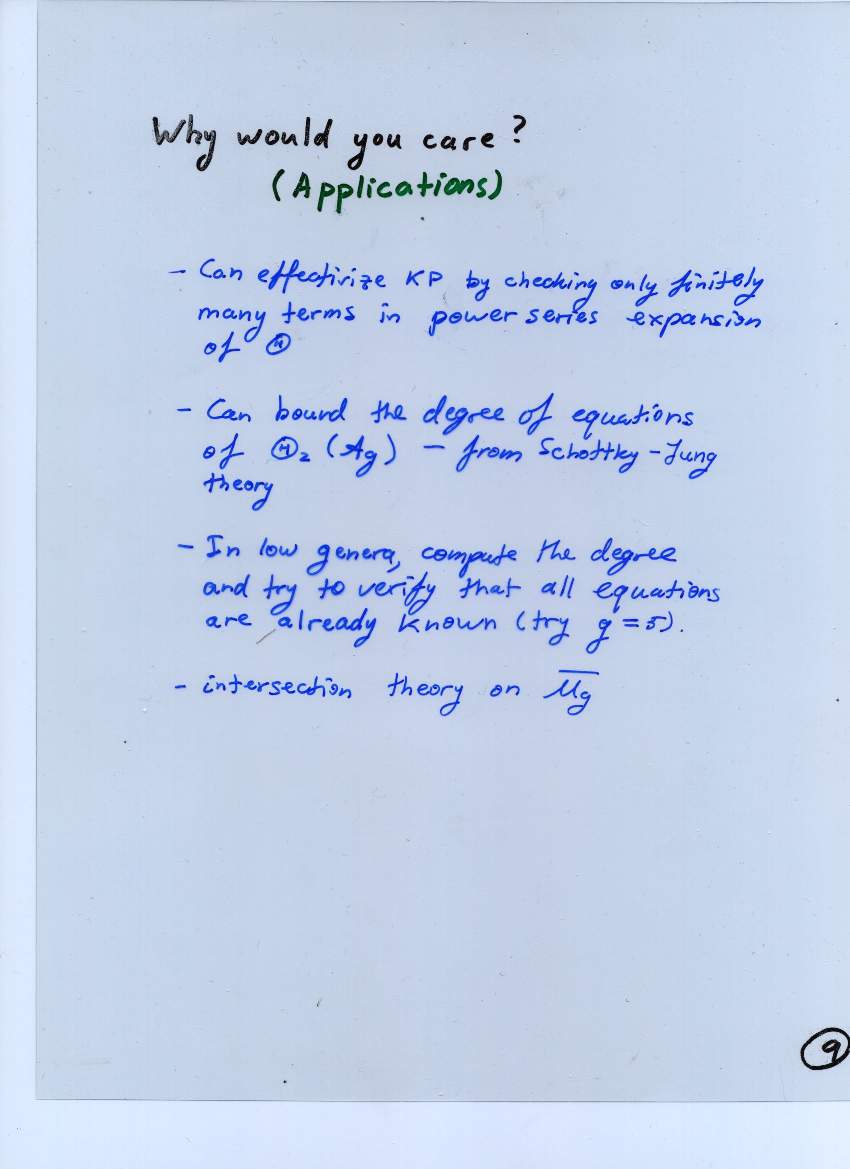 Why would you care?
(Applications)
- Can effectivize KP by checking only finitely
many terms in power series expansion
of Θ
- Can bound the degree of equations
of Θ₂ (Ag) - from Schottky-Jung
theory
- In low genera, compute the degree
and try to verify that all equations
are already known (try g = 5).
- intersection theory on M̅g
9